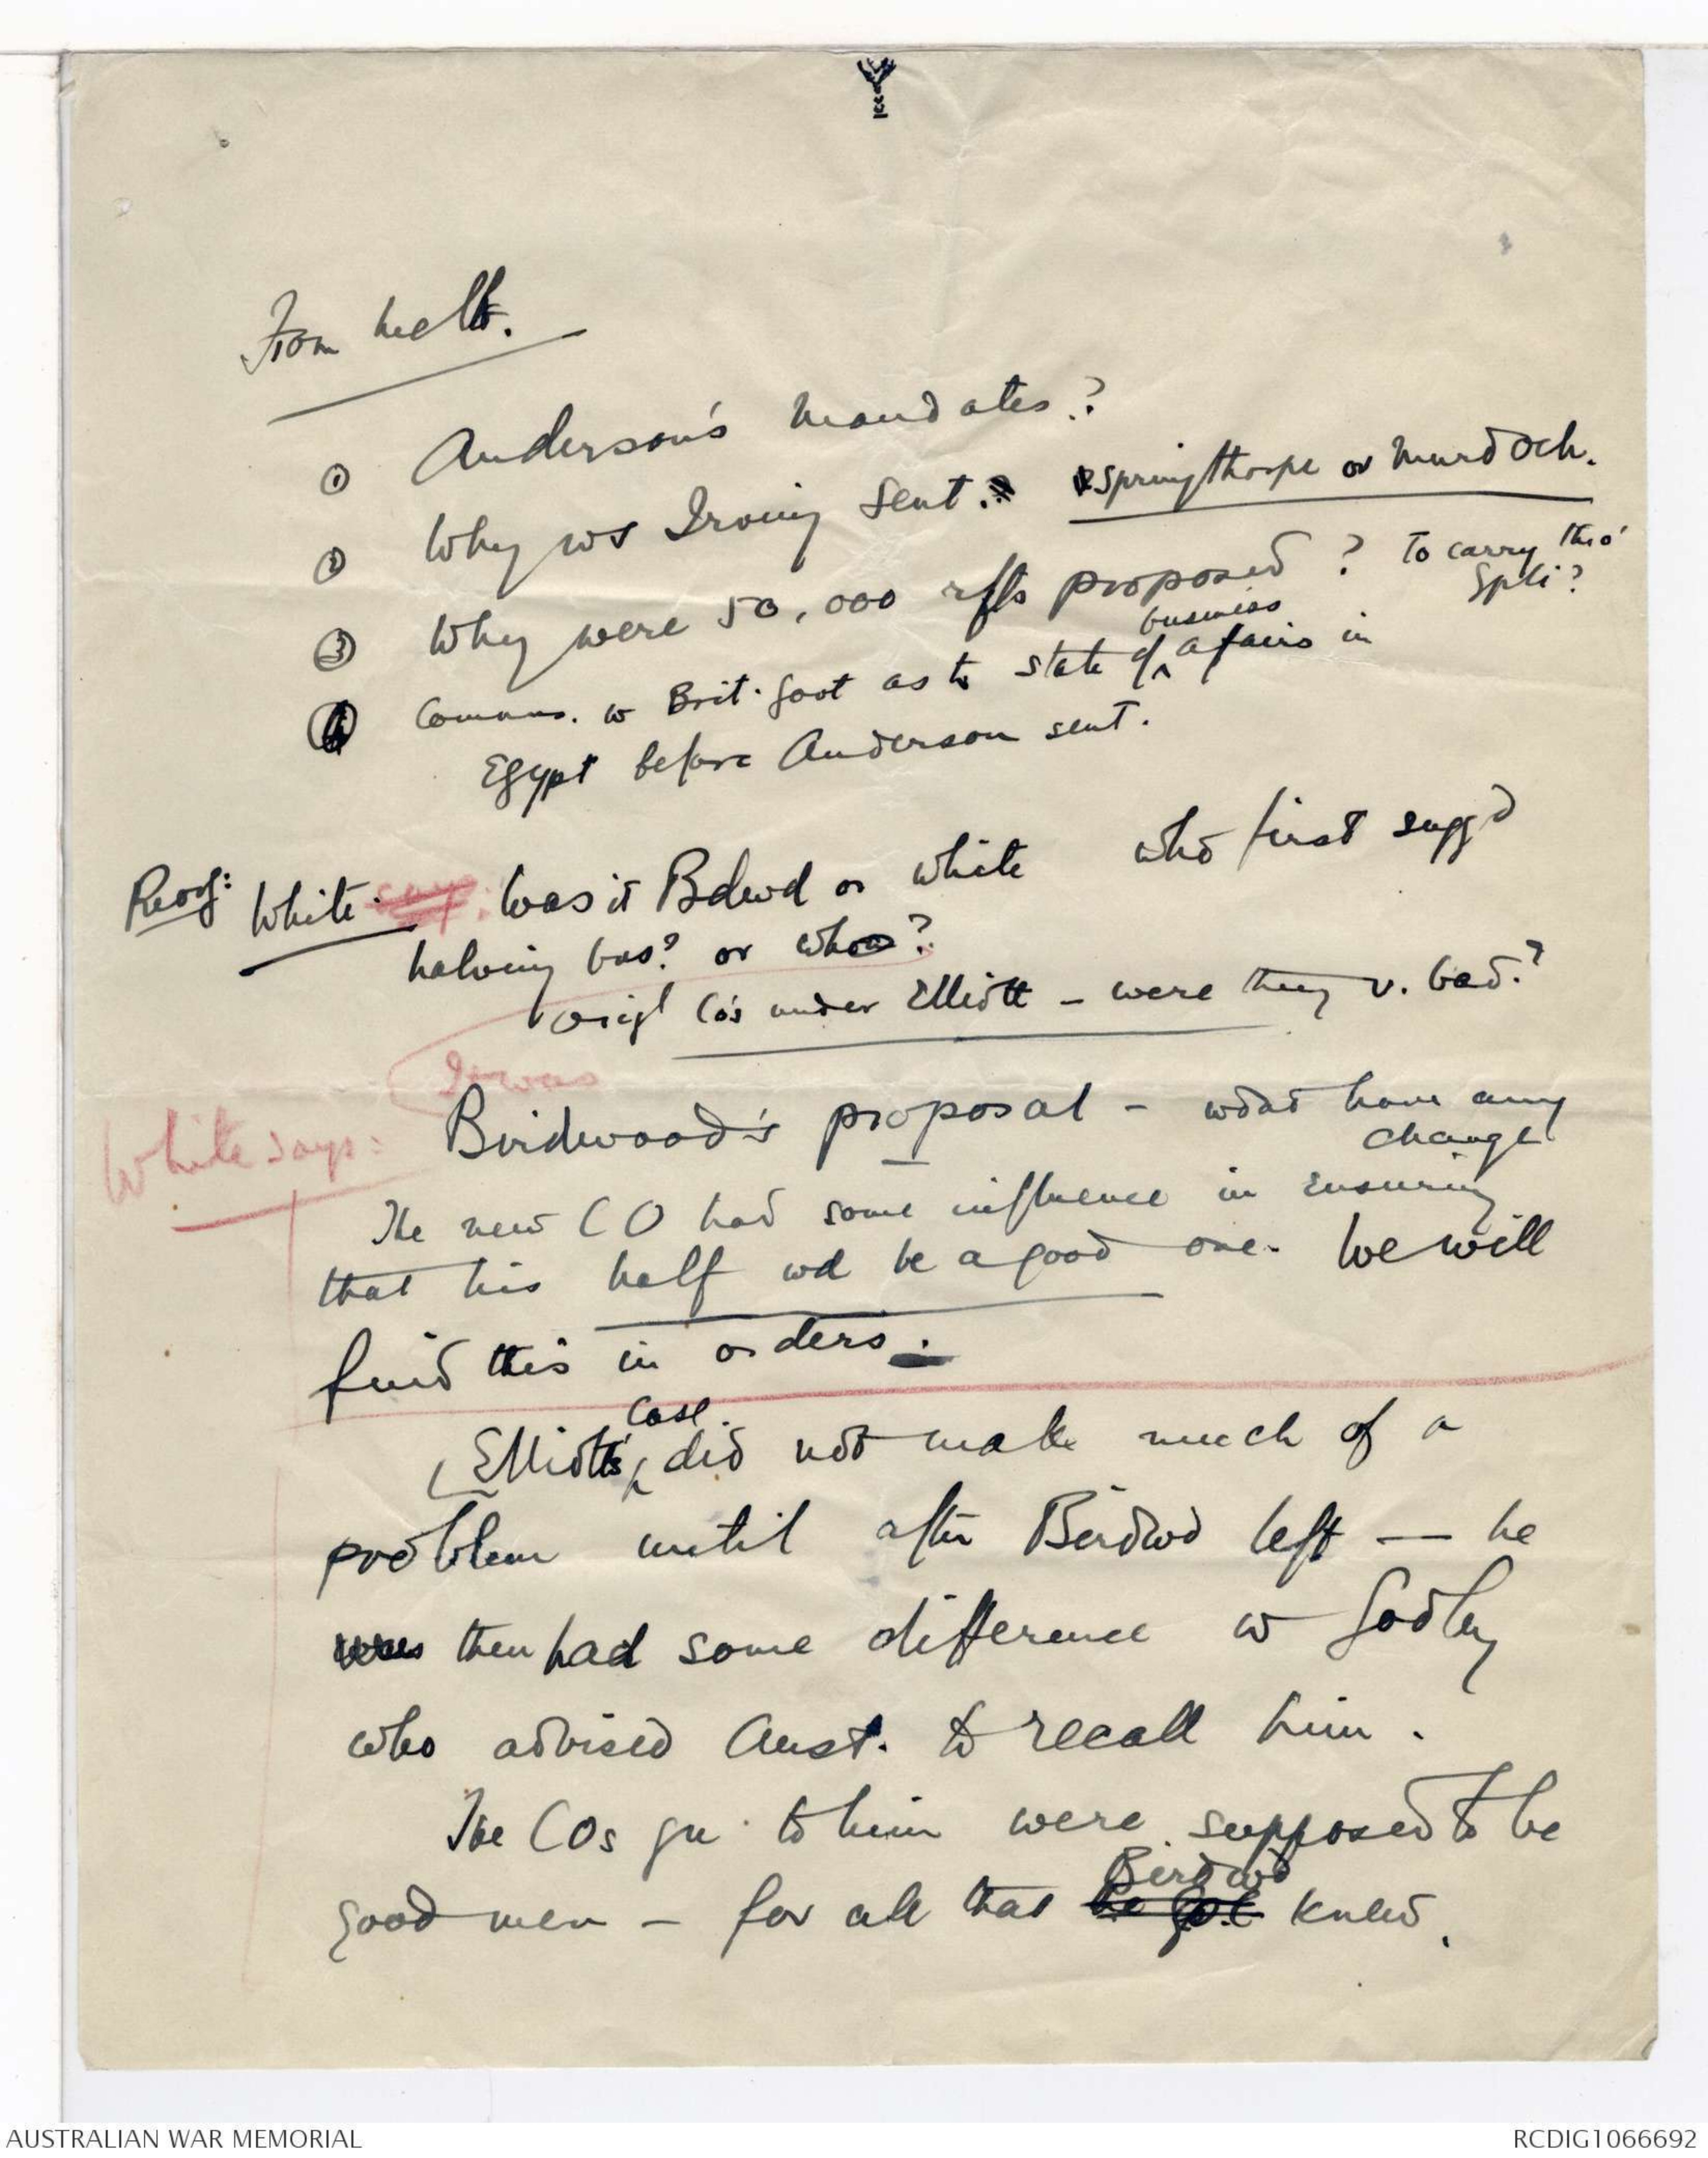 From Melb.
① Anderson's Mandates?
② Why ws Irving sent. Springthorpe or Murdoch.
③ Why were 50,000 rfts proposed? To carry thro' Gpli?
④ Communs. w Brit. Govt as to state of business affairs in
Egypt before Anderson sent.
Reorg: White. Was it Bdwd or White who first sugg'd
halving bns? or who?
Origl Co's under Elliott - were they v. bad?
White says: It was
Birdwood's proposal - wdnt have any
change
The new CO had some influence in ensuring
that his half wd be a good one. We will
find this in orders.
(Elliott's case did not make much of a
problem until after Birdwd left — he
then had some difference w Godley
who advised Aust. to recall him.
The COs gvn to him were supposed to be
good men - for all that Birdwd knew.
AUSTRALIAN WAR MEMORIAL
RCDIG1066692